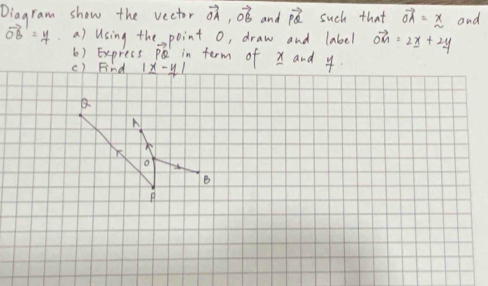 Diagram show the vector OA, OB and PQ such that OA = x and
OB = y. a) Using the point O, draw and label OM = 2x + 2y
b) Express PQ in term of x and y.
c) Find |x - y|
Q
A
O
B
P